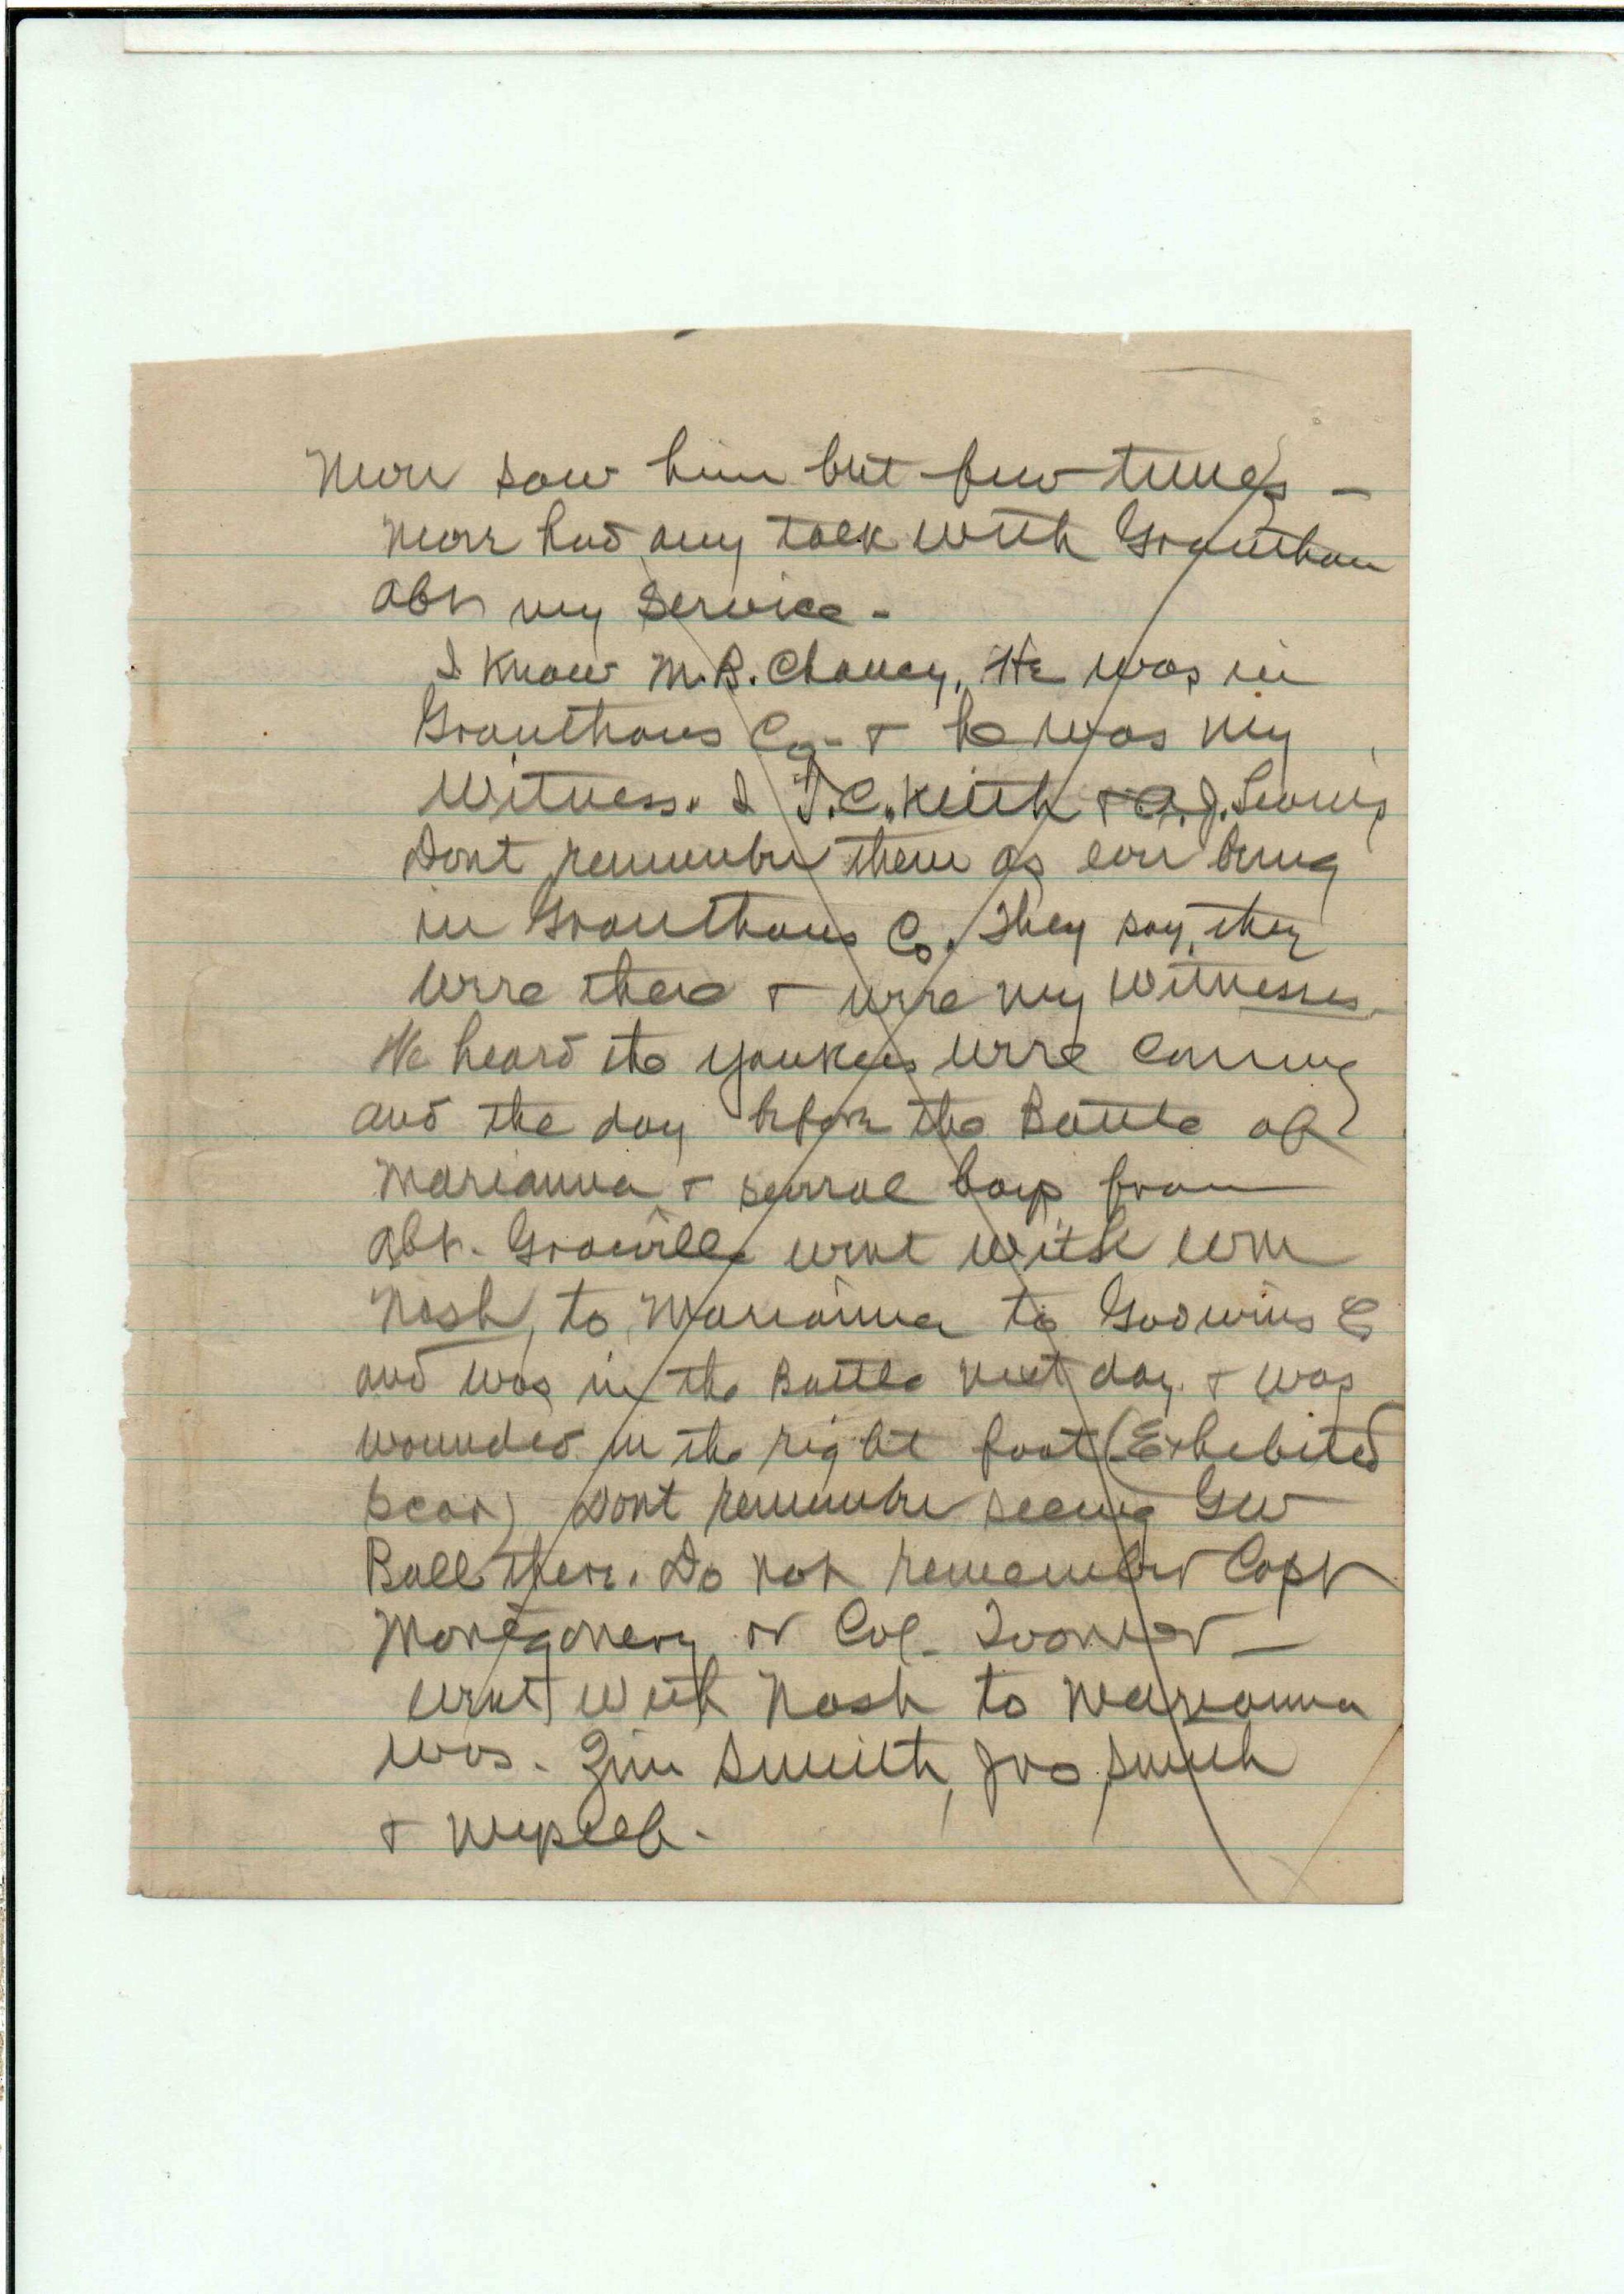 Never saw him but few times -
never had any talk with Grantham
abt my service -
I know M. B. Chancy, He was in
Granthams Co - + he was my
Witness. I J. C. Keith + A. J. Lewis
dont remember them as ever being
in Granthams Co. They say they
were there + were my witnesses.
We heard the yankees were coming
and the day before the Battle of
Marianna + several boys from
abt. Graceville went with Wm
Nash, to Marianna to Godwins C
and was in the Battle next day. + was
wounded in the right foot (Exhibited
scar) dont remember seeing Geo
Ball there. Do not remember Capt
Montgomery or Col.
went with Nash to Marianna
was. Jim Smith, Jno Smith
+ myself.